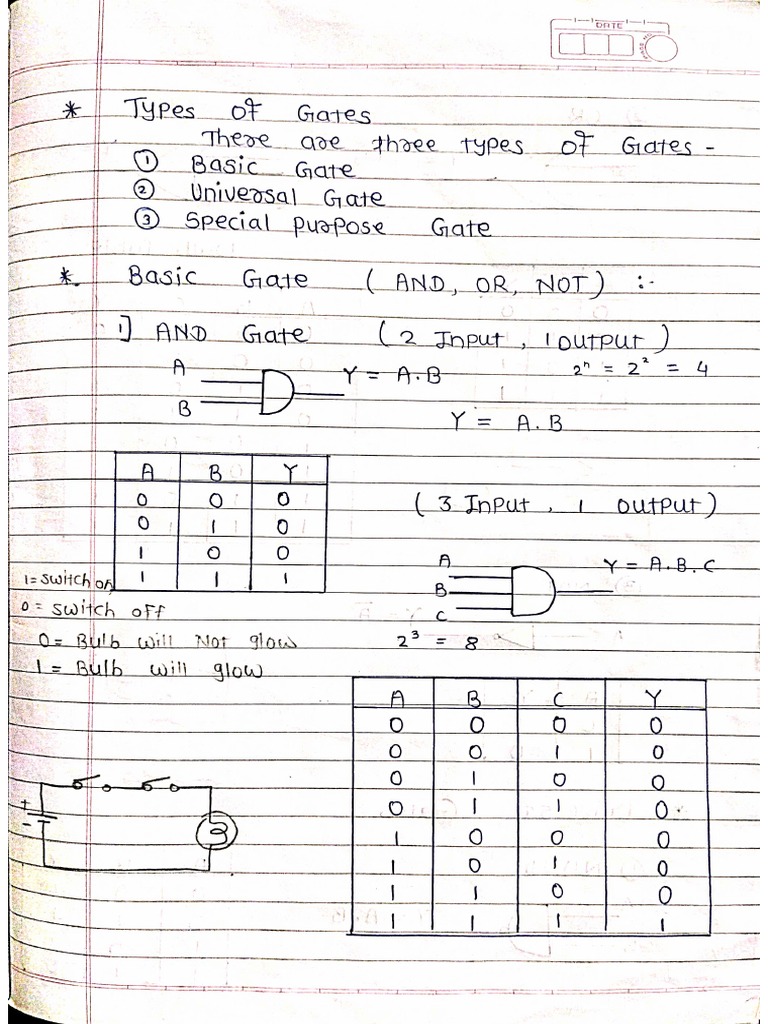 DATE
* Types of Gates
There are three types of Gates -
① Basic Gate
② Universal Gate
③ Special purpose Gate
*. Basic Gate (AND, OR, NOT) :-
1] AND Gate (2 Input, 1 output)
A
B
Y = A.B
2ⁿ = 2² = 4
Y = A.B
A B Y
0 0 0
0 1 0
1 0 0
1 1 1
1 = switch on
0 = switch off
0 = Bulb will Not glow
1 = Bulb will glow
(3 Input, 1 output)
A
B
C
Y = A.B.C
2³ = 8
A B C Y
0 0 0 0
0 0 1 0
0 1 0 0
0 1 1 0.
1 0 0 0
1 0 1 0
1 1 0 0
1 1 1 1
+
-